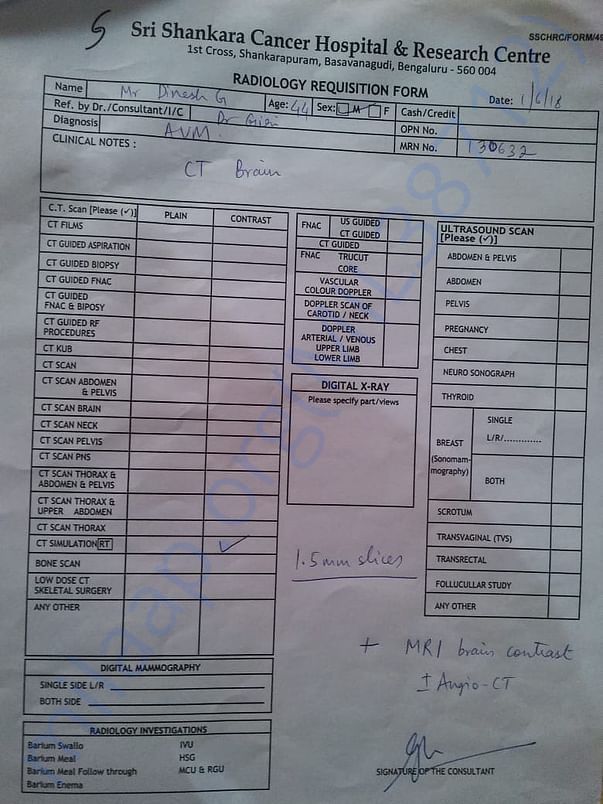 SSCHRC/FORM/49
Sri Shankara Cancer Hospital & Research Centre
1st Cross, Shankarapuram, Basavanagudi, Bengaluru - 560 004
RADIOLOGY REQUISITION FORM
Date: 1/6/18
Name Mr Dinesh G Age: 44 Sex: M F Cash/Credit
Ref. by Dr./Consultant/I/C Dr OPN No.
Diagnosis AVM. MRN No. 130632
CLINICAL NOTES :
CT Brain
C.T. Scan [Please (✓)] PLAIN CONTRAST
CT FILMS
CT GUIDED ASPIRATION
CT GUIDED BIOPSY
CT GUIDED FNAC
CT GUIDED
FNAC & BIPOSY
CT GUIDED RF
PROCEDURES
CT KUB
CT SCAN
CT SCAN ABDOMEN
& PELVIS
CT SCAN BRAIN
CT SCAN NECK
CT SCAN PELVIS
CT SCAN PNS
CT SCAN THORAX &
ABDOMEN & PELVIS
CT SCAN THORAX &
UPPER ABDOMEN
CT SCAN THORAX
CT SIMULATION RT ✓
BONE SCAN
LOW DOSE CT
SKELETAL SURGERY
ANY OTHER
DIGITAL MAMMOGRAPHY
SINGLE SIDE L/R
BOTH SIDE
RADIOLOGY INVESTIGATIONS
Barium Swallo IVU
Barium Meal HSG
Barium Meal Follow through MCU & RGU
Barium Enema
FNAC US GUIDED
CT GUIDED
CT GUIDED
FNAC TRUCUT
CORE
VASCULAR
COLOUR DOPPLER
DOPPLER SCAN OF
CAROTID / NECK
DOPPLER
ARTERIAL / VENOUS
UPPER LIMB
LOWER LIMB
DIGITAL X-RAY
Please specify part/views
1.5mm slices
ULTRASOUND SCAN
[Please (✓)]
ABDOMEN & PELVIS
ABDOMEN
PELVIS
PREGNANCY
CHEST
NEURO SONOGRAPH
THYROID
BREAST
(Sonomam-
mography)
SINGLE
L/R/.............
BOTH
SCROTUM
TRANSVAGINAL (TVS)
TRANSRECTAL
FOLLUCULLAR STUDY
ANY OTHER
+ MRI brain contrast
± Angio-CT
SIGNATURE OF THE CONSULTANT